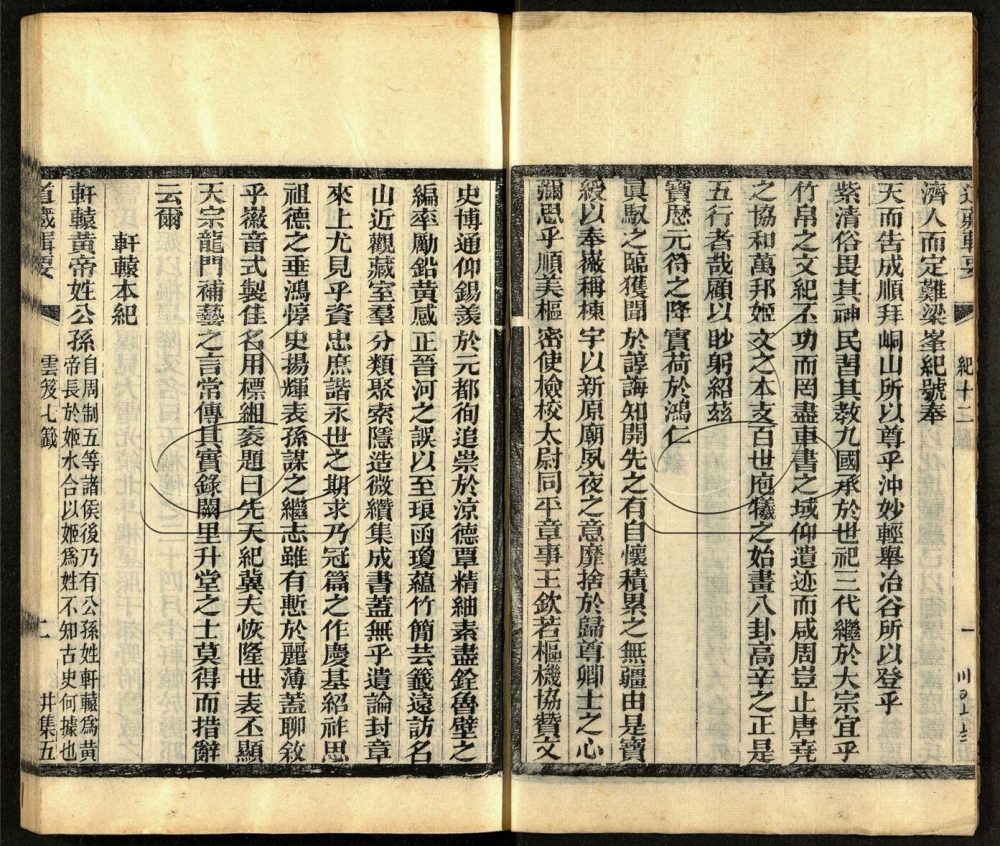 濟人而定難梁峯紀號奉
天而告成順拜峒山所以尊乎沖妙輕舉冶谷所以登乎
紫清俗畏其神民習其教九國承於世祀三代繼於大宗宜乎
竹帛之文紀不功而罔盡車書之域仰遺迹而咸周豈止唐堯
之協和萬邦姬文之本支百世庖犧之始畫八卦高辛之正是
五行者哉顧以眇躬紹茲
寶歷元符之降實荷於鴻仁
眞馭之臨獲聞於諄誨知開先之有自懷積累之無疆由是寶
綬以奉嶶稱棟宇以新原廟夙夜之意靡捨於歸尊卿士之心
彌思乎順美樞密使檢校太尉同平章事王欽若樞機協贊文
史博通仰錫羨於元都徇追崇於涼德覃精紬素盡銓魯壁之
編率勵鉛黄感正晉河之誤以至琅函瓊蘊竹簡芸籤遠訪名
山近觀藏室羣分類聚索隱造微纘集成書蓋無乎遺論封章
來上尤見乎資忠庶諧永世之期求乃冠篇之作慶基紹祚思
祖德之垂鴻惇史揚輝表孫謀之繼志雖有慙於麗薄蓋聊敘
乎嶶音式製佳名用標緗袠題曰先天紀冀夫恢隆世表丕顯
天宗龍門補藝之言常傳其實錄闕里升堂之士莫得而措辭
云爾
軒轅本紀
軒轅黄帝姓公孫自周制五等諸侯後乃有公孫姓軒轅爲黄
帝長於姬水合以姬爲姓不知古史何據也
道藏輯要
雲笈七籤
井集五